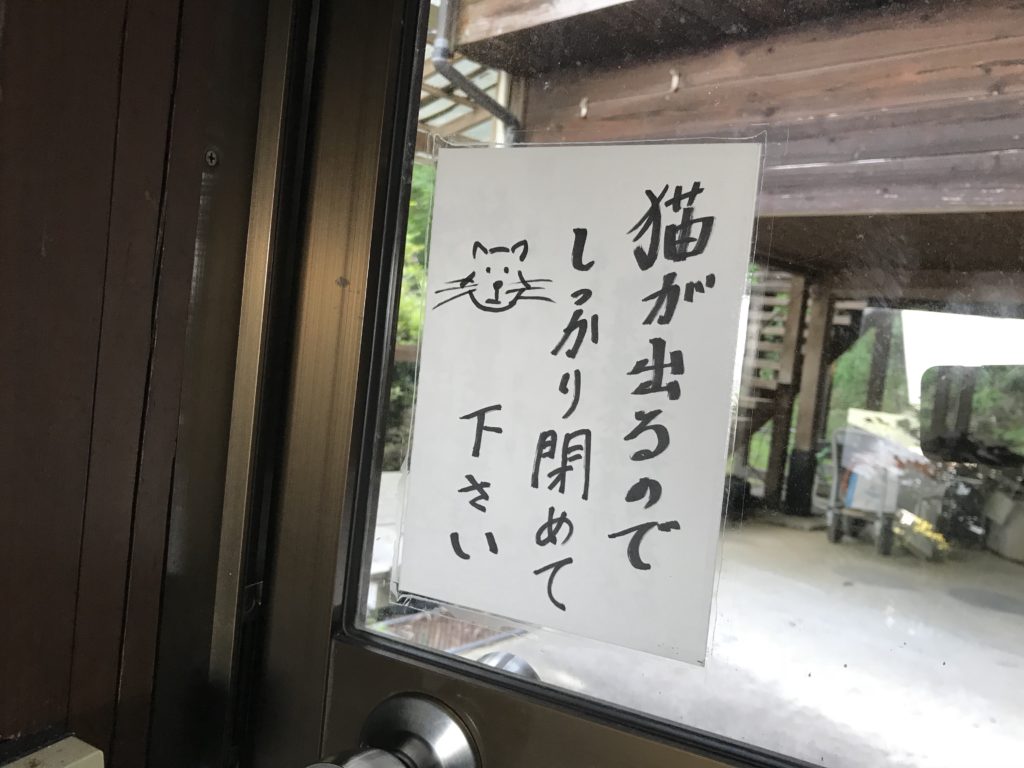 猫が出るので
しっかり閉めて
下さい